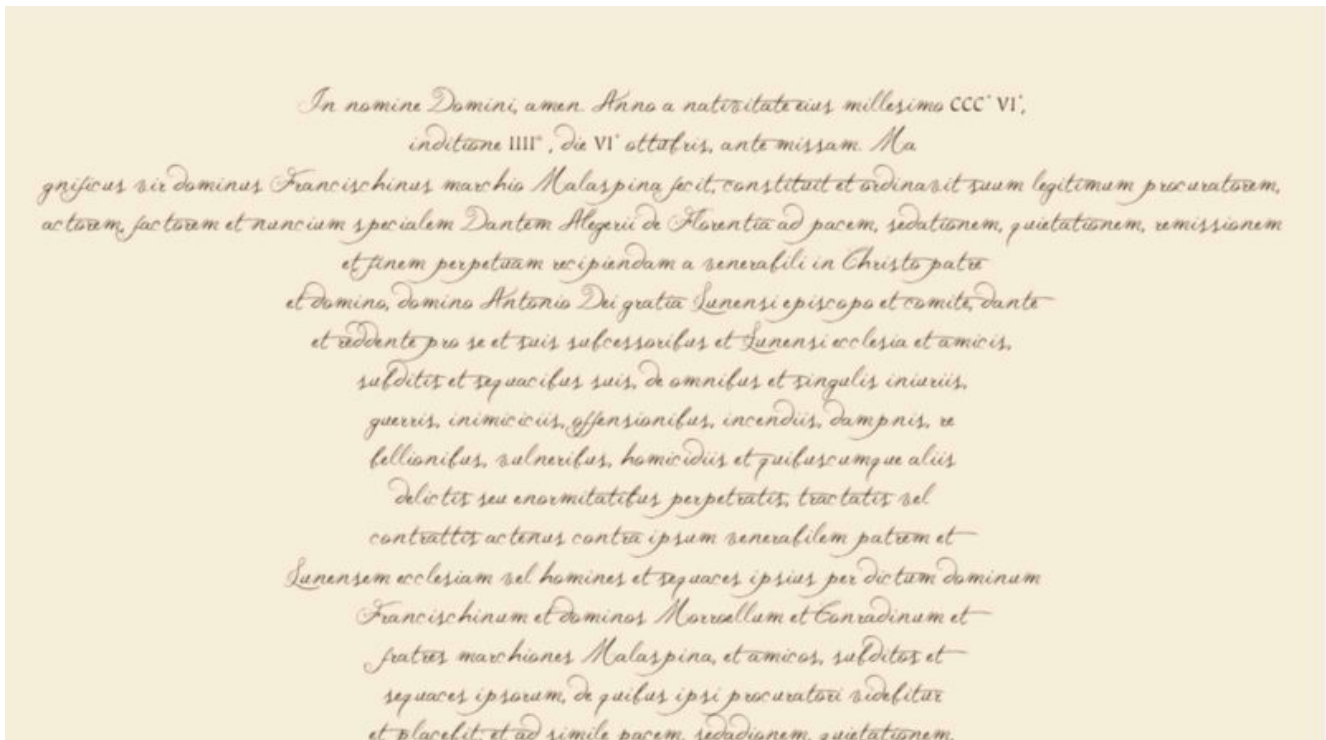 In nomine Domini, amen. Anno a nativitate eius millesimo CCC° VI°,
inditione IIII° , die VI° ottubris, ante missam. Ma
gnificus vir dominus Francischinus marchio Malaspina fecit, constituit et ordinavit suum legitimum procuratorem,
actorem, factorem et nuncium specialem Dantem Alegerii de Florentia ad pacem, sedationem, quietationem, remissionem
et finem perpetuam recipiendam a venerabili in Christo patre
et domino, domino Antonio Dei gratia Lunensi episcopo et comite, dante
et reddente pro se et suis subcessoribus et Lunensi ecclesia et amicis,
subditis et sequacibus suis, de omnibus et singulis iniuriis,
guerris, inimiciciis, offensionibus, incendiis, dampnis, re
bellionibus, vulneribus, homicidiis et quibuscumque aliis
delictis seu enormitatibus perpetratis, tractatis vel
contrattis actenus contra ipsum venerabilem patrem et
Lunensem ecclesiam vel homines et sequaces ipsius per dictum dominum
Francischinum et dominos Morroellum et Conradinum et
fratres marchiones Malaspina, et amicos, subditos et
sequaces ipsorum, de quibus ipsi procuratori videbitur
et placebit, et ad simile pacem, sedadionem, quietationem,